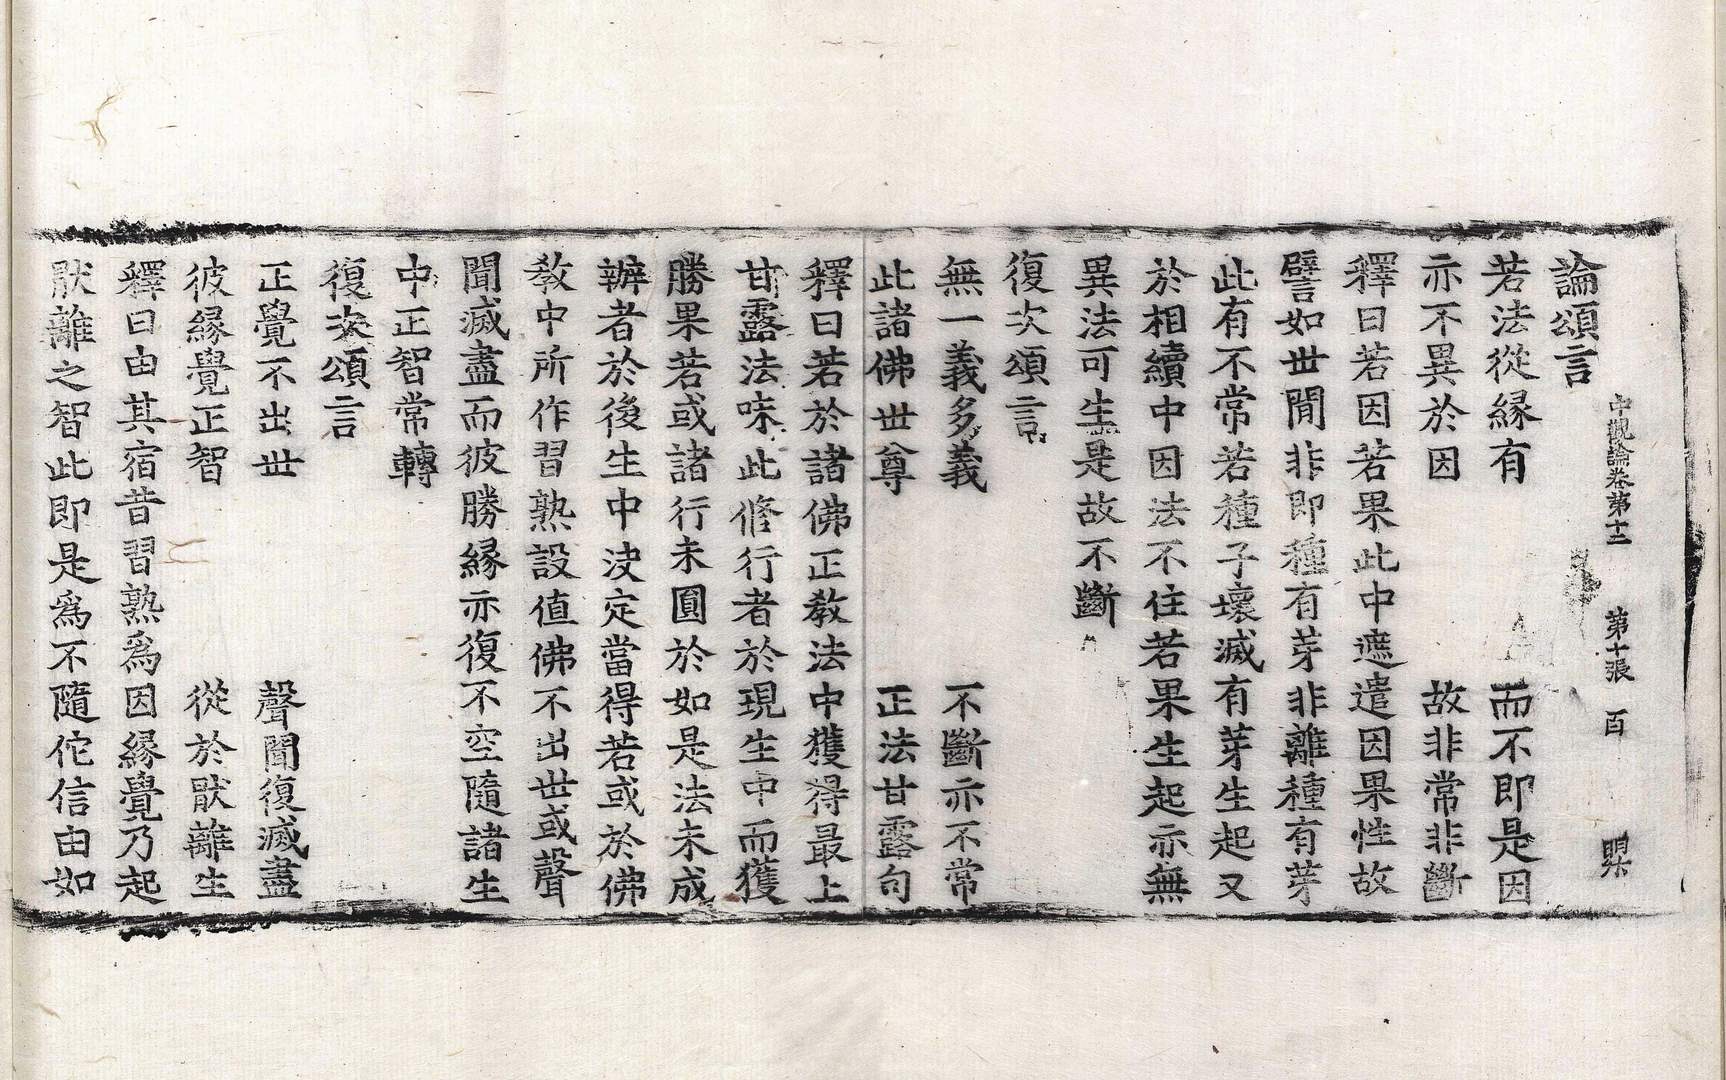 中觀論卷第十二 第十張 百
論頌言
若法從緣有 而不即是因
亦不異於因 故非常非斷
釋曰若因若果此中遮遣因果性故
譬如世間非即種有芽非離種有芽
此有不常若種子壞滅有芽生起又
於相續中因法不住若果生起亦無
異法可生是故不斷
復次頌言
無一義多義 不斷亦不常
此諸佛世尊 正法甘露句
釋曰若於諸佛正教法中獲得最上
甘露法味此修行者於現生中而獲
勝果若或諸行未圓於如是法未成
辦者於後生中決定當得若或於佛
教中所作習熟設值佛不出世或聲
聞滅盡而彼勝緣亦復不空隨諸生
中正智常轉
復次頌言
正覺不出世 聲聞復滅盡
彼緣覺正智 從於猒離生
釋曰由其宿昔習熟爲因緣覺乃起
猒離之智此即是爲不隨佗信由如